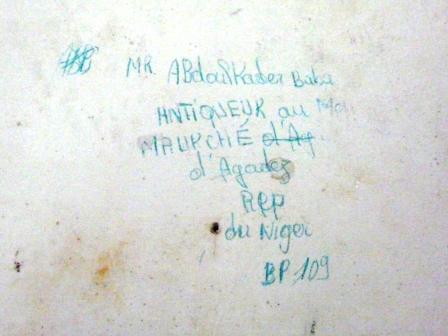 MR. Abdoulkader Baba
ANTIQUEUR au
MAURCHÉ d'Ag
d'Agadez
Rep
du Niger
BP 109